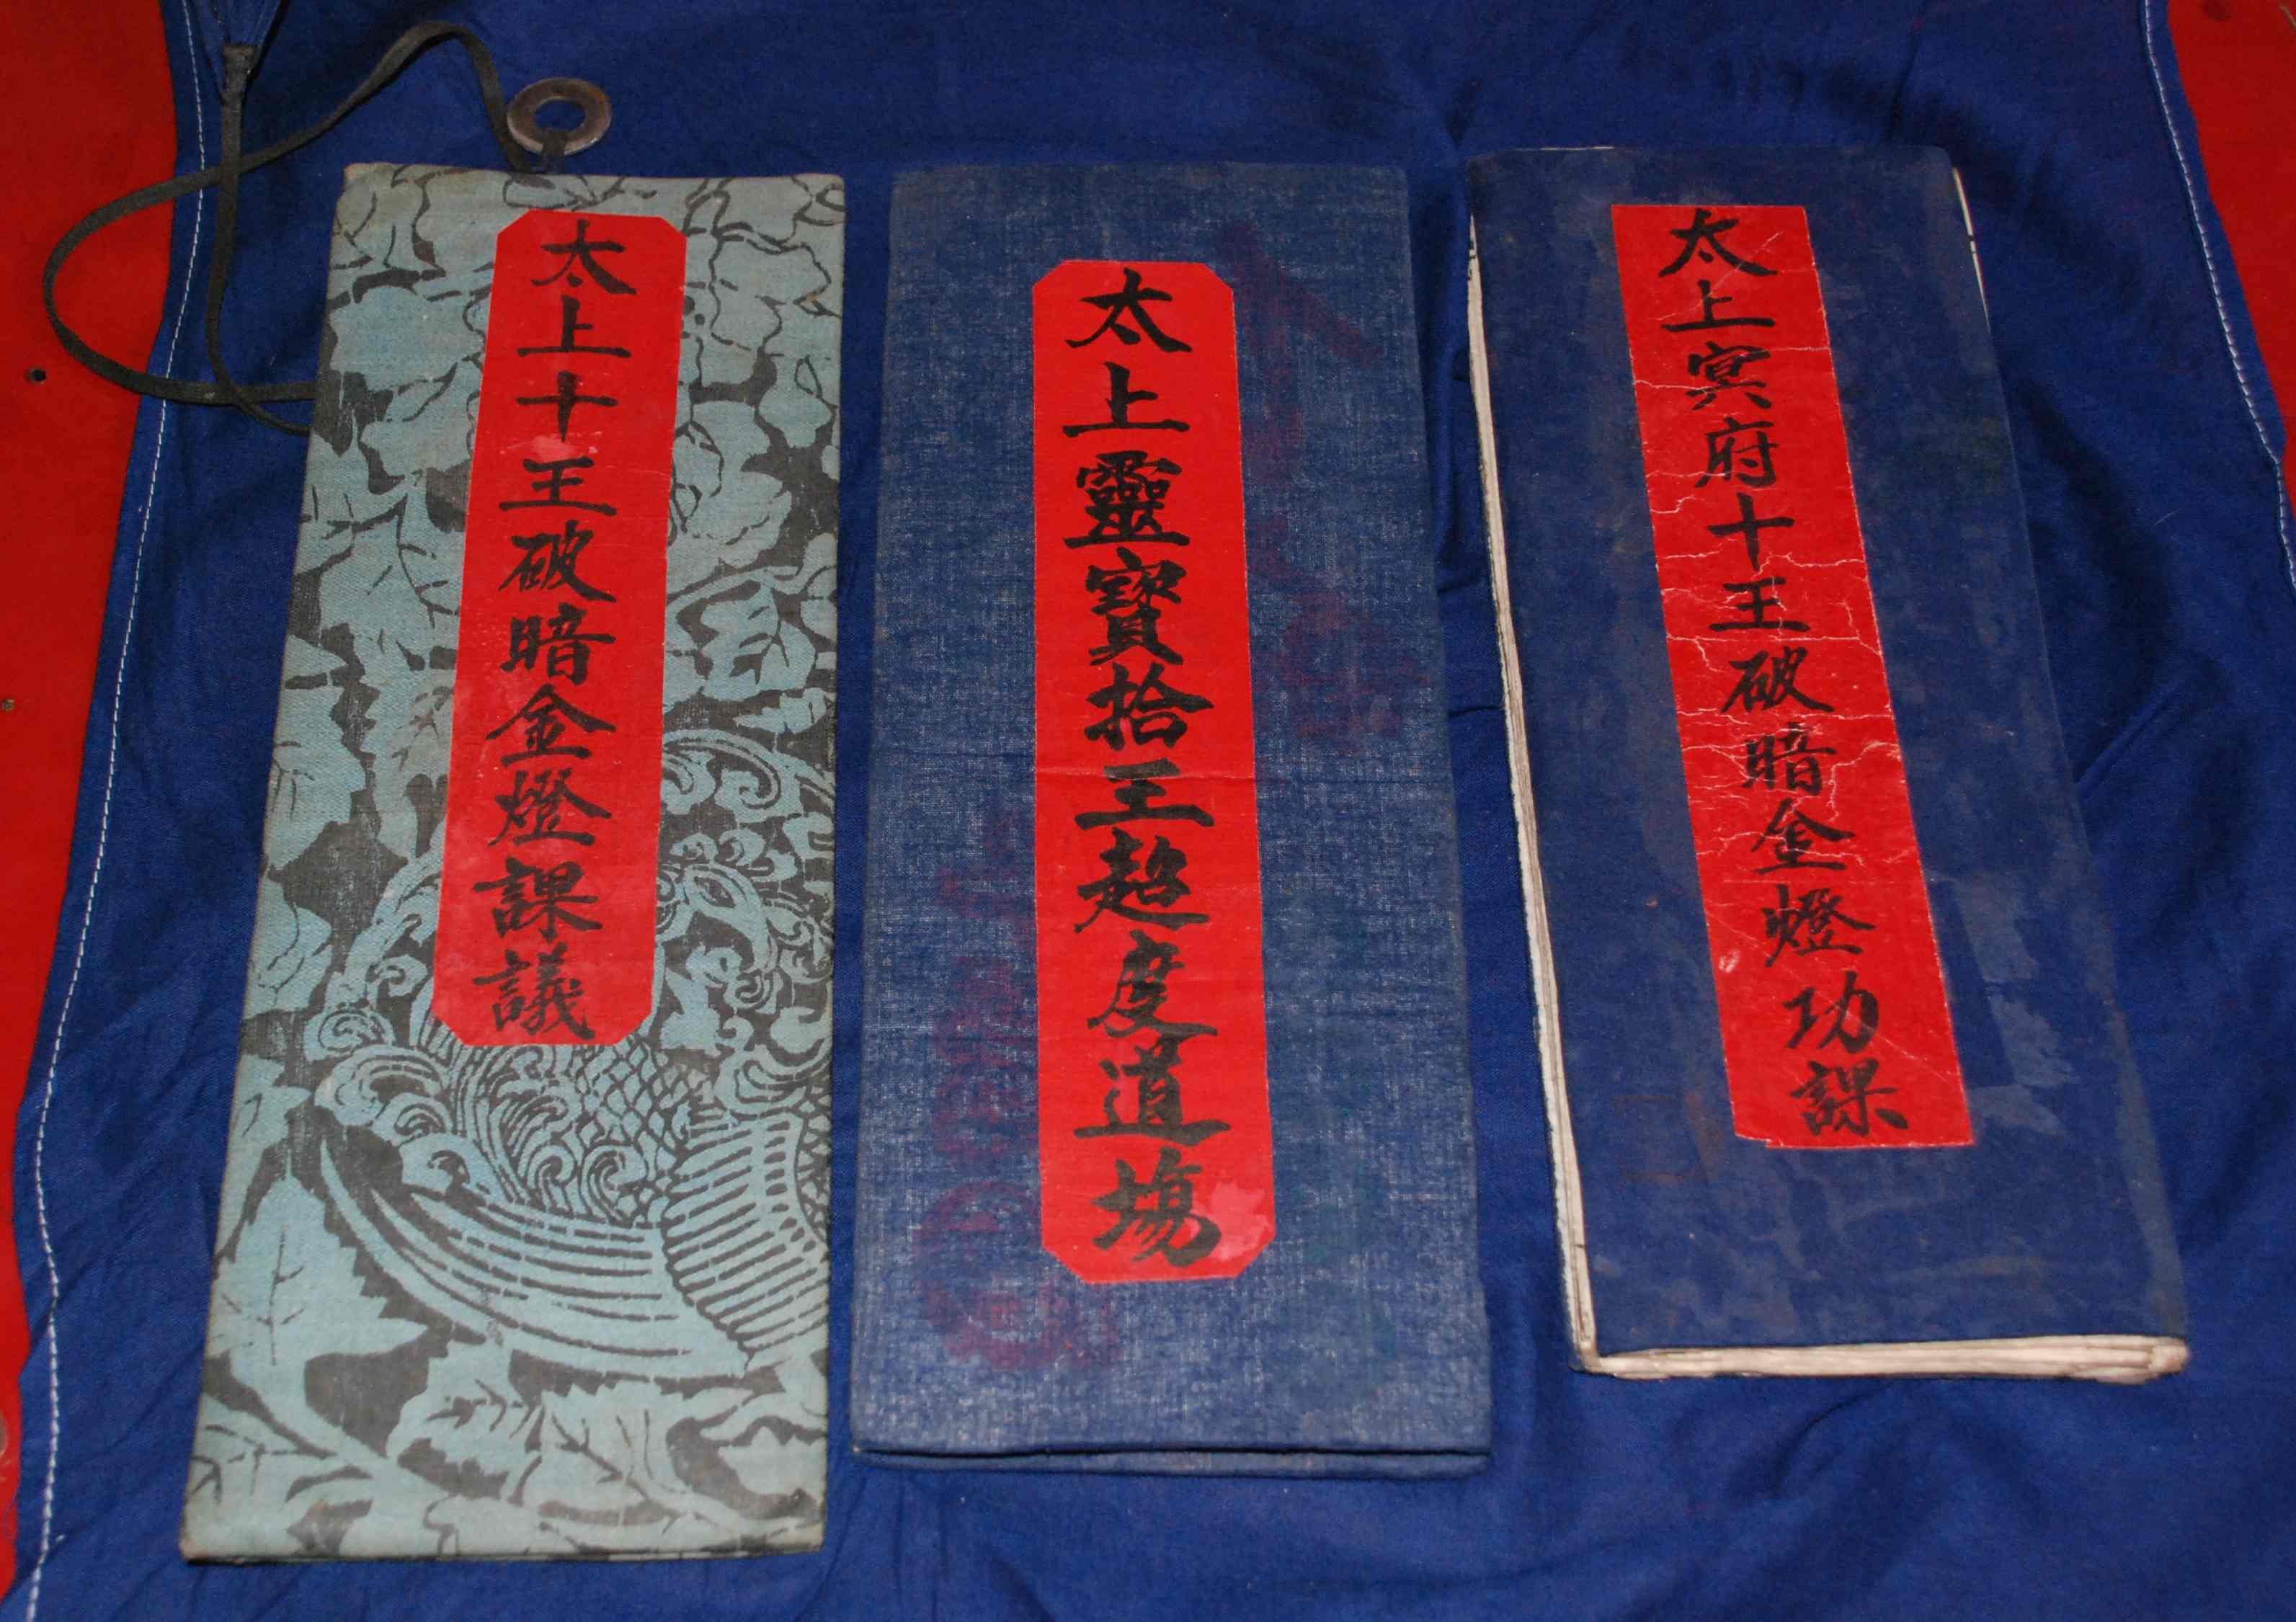 太上十王破暗金燈課議
太上靈寶拾王超度道場
太上冥府十王破暗金燈功課